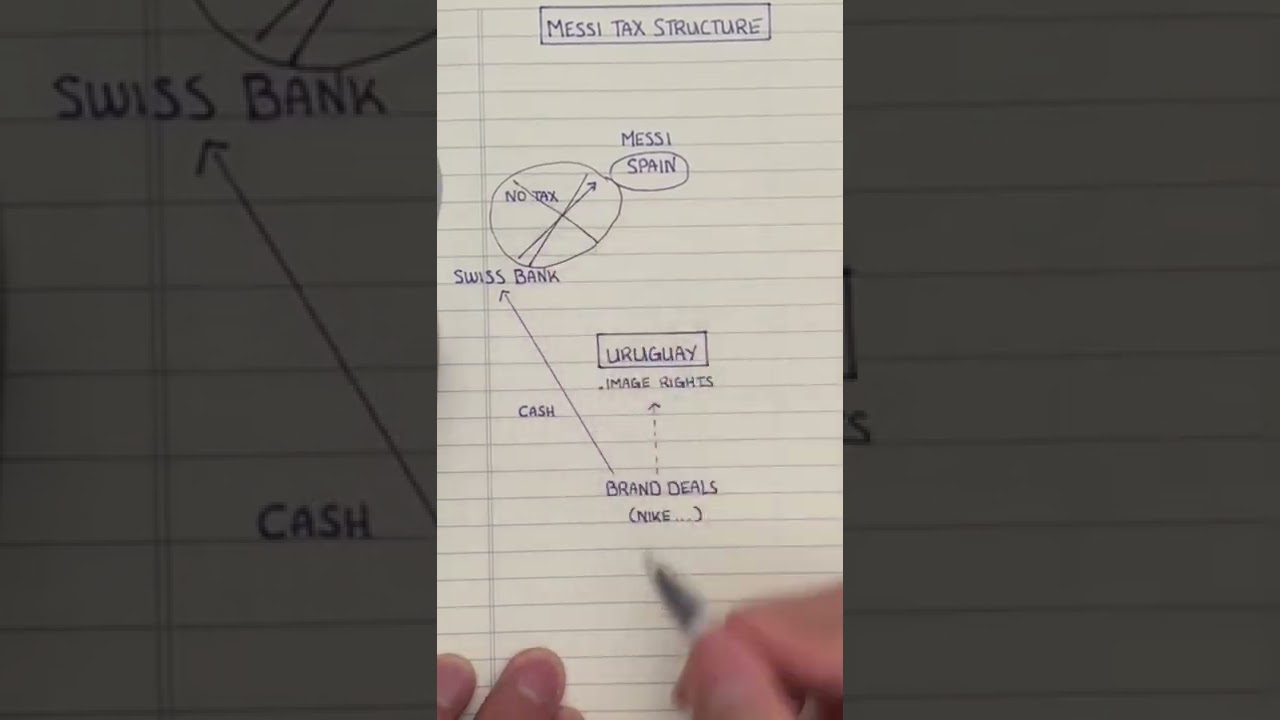 MESSI TAX STRUCTURE
MESSI
SPAIN
NO TAX
SWISS BANK
URUGUAY
.IMAGE RIGHTS
CASH
BRAND DEALS
(NIKE...)
SWISS BANK
CASH
S